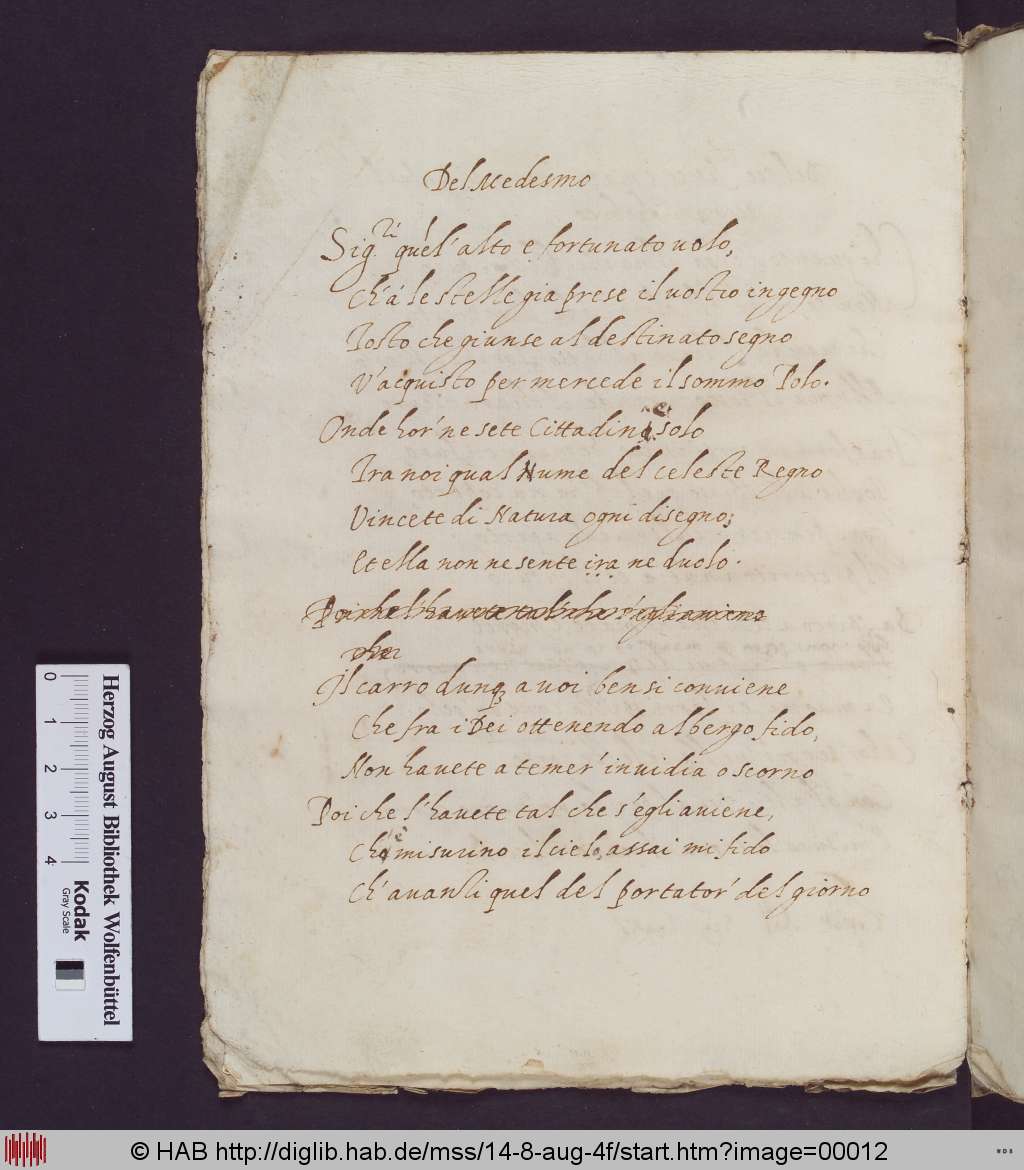 Del Medesmo
Sig.ri quel' alto e fortunato uolo,
Ch'á le stelle gia prese il uostro ingegno
Tosto che giunse al destinato segno
V'acquisto per mercede il sommo Polo.
Onde hor' ne sete Cittadini, e solo
Tra noi qual Nume del celeste Regno
Vincete di Natura ogni disegno;
Et ella non ne sente ira ne duolo.
Poi che l'havete tal che s'egli aviene
Che
Il carro dunq; a uoi ben si conviene
Che fra i Dei ottenendo albergo fido,
Non havete a temer' invidia o scorno
Poi che l'havete tal che s'egli aviene,
Che misurino il cielo, assai mi fido
Ch' avanzi quel del portator' del giorno
Herzog August Bibliothek Wolfenbüttel
0 1 2 3 4
Kodak
Gray Scale
© HAB http://diglib.hab.de/mss/14-8-aug-4f/start.htm?image=00012